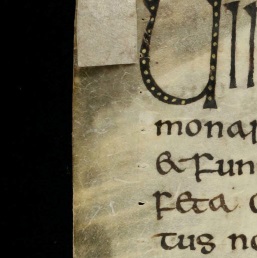 UII
monar
& fun
feta
tus no